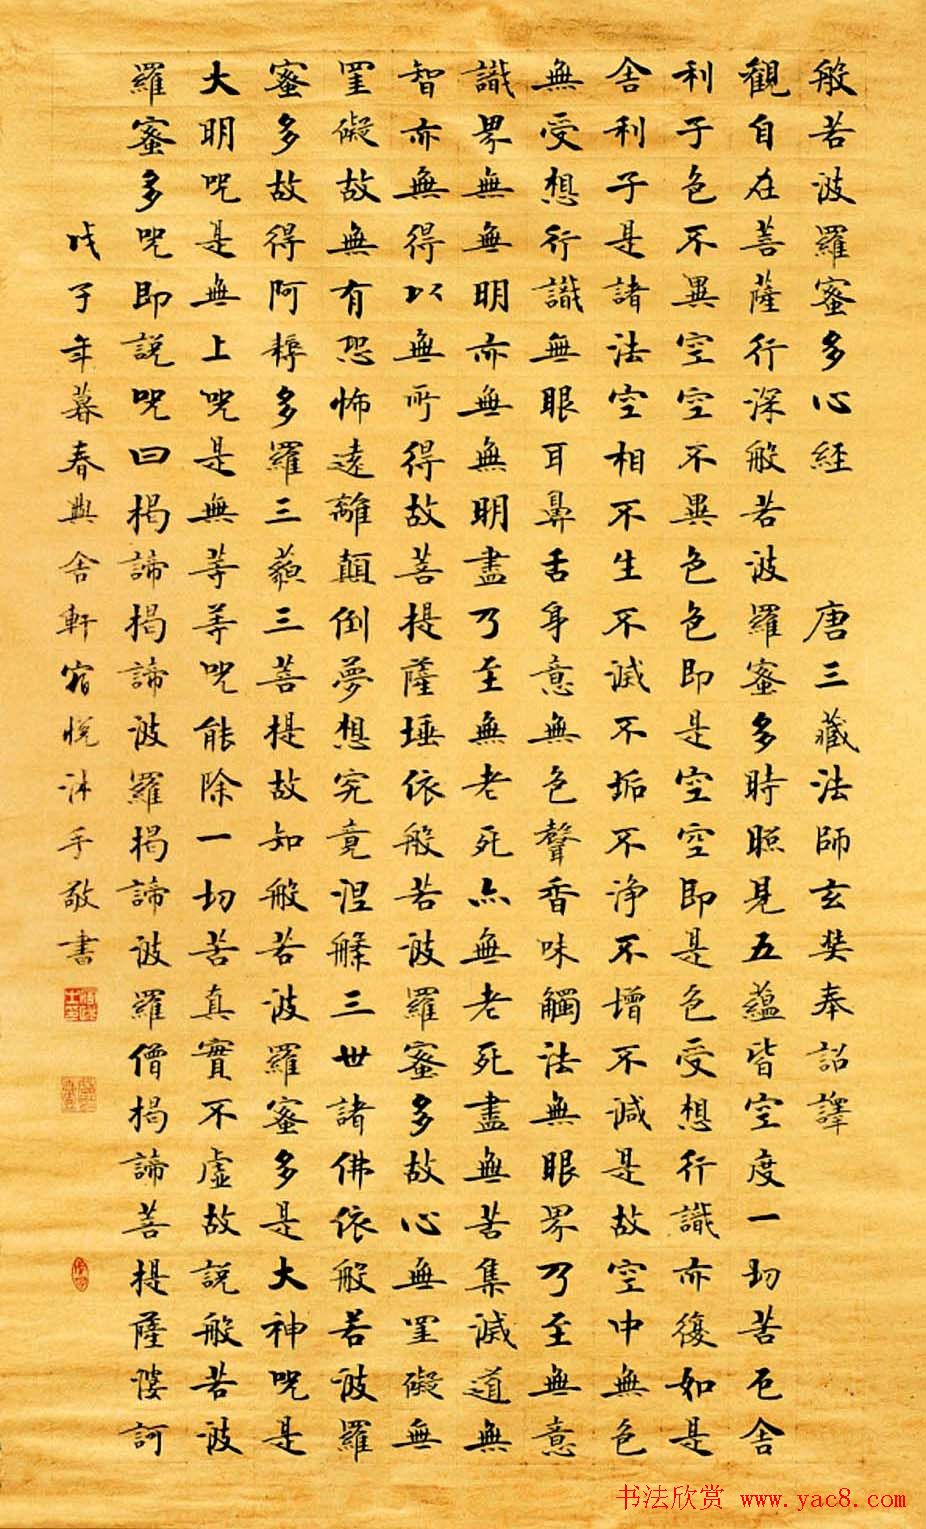 般若波羅蜜多心經 唐三藏法師玄奘奉詔譯
觀自在菩薩行深般若波羅蜜多時照見五蘊皆空度一切苦厄舍
利子色不異空空不異色色即是空空即是色受想行識亦復如是
舍利子是諸法空相不生不滅不垢不净不增不減是故空中無色
無受想行識無眼耳鼻舌身意無色聲香味觸法無眼界乃至無意
識界無無明亦無無明盡乃至無老死亦無老死盡無苦集滅道無
智亦無得以無所得故菩提薩埵依般若波羅蜜多故心無罣礙無
罣礙故無有恐怖遠離顛倒夢想究竟涅槃三世諸佛依般若波羅
蜜多故得阿耨多羅三藐三菩提故知般若波羅蜜多是大神咒是
大明咒是無上咒是無等等咒能除一切苦真實不虛故説般若波
羅蜜多咒即説咒曰揭諦揭諦波羅揭諦波羅僧揭諦菩提薩婆訶
戊子年暮春興舍軒宿悅沐手敬書
书法欣赏 www.yac8.com